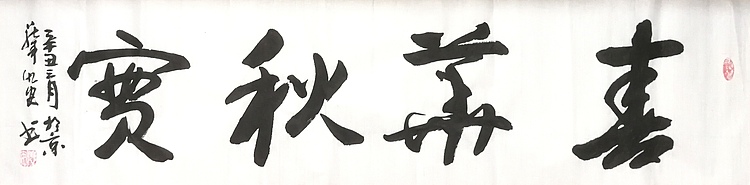 春華秋實
辛丑三月於京